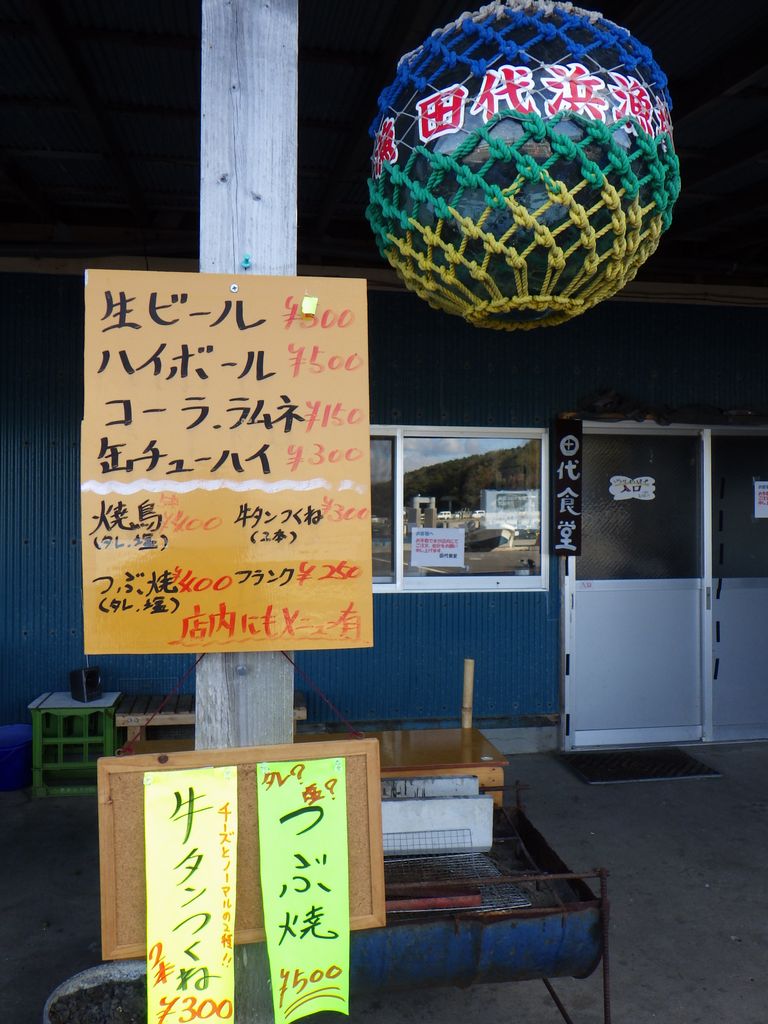 田代浜漁
生ビール ¥500
ハイボール ¥500
コーラ.ラムネ ¥150
缶チューハイ ¥300
焼鳥 ¥400
(タレ.塩)
牛タンつくね ¥300
(2本)
つぶ焼 ¥400
(タレ.塩)
フランク ¥250
店内にもメニュー有
田代食堂
入口
牛タンつくね
チーズとノーマルの2種!!
2本
¥300
タレ?
塩?
つぶ焼
¥500